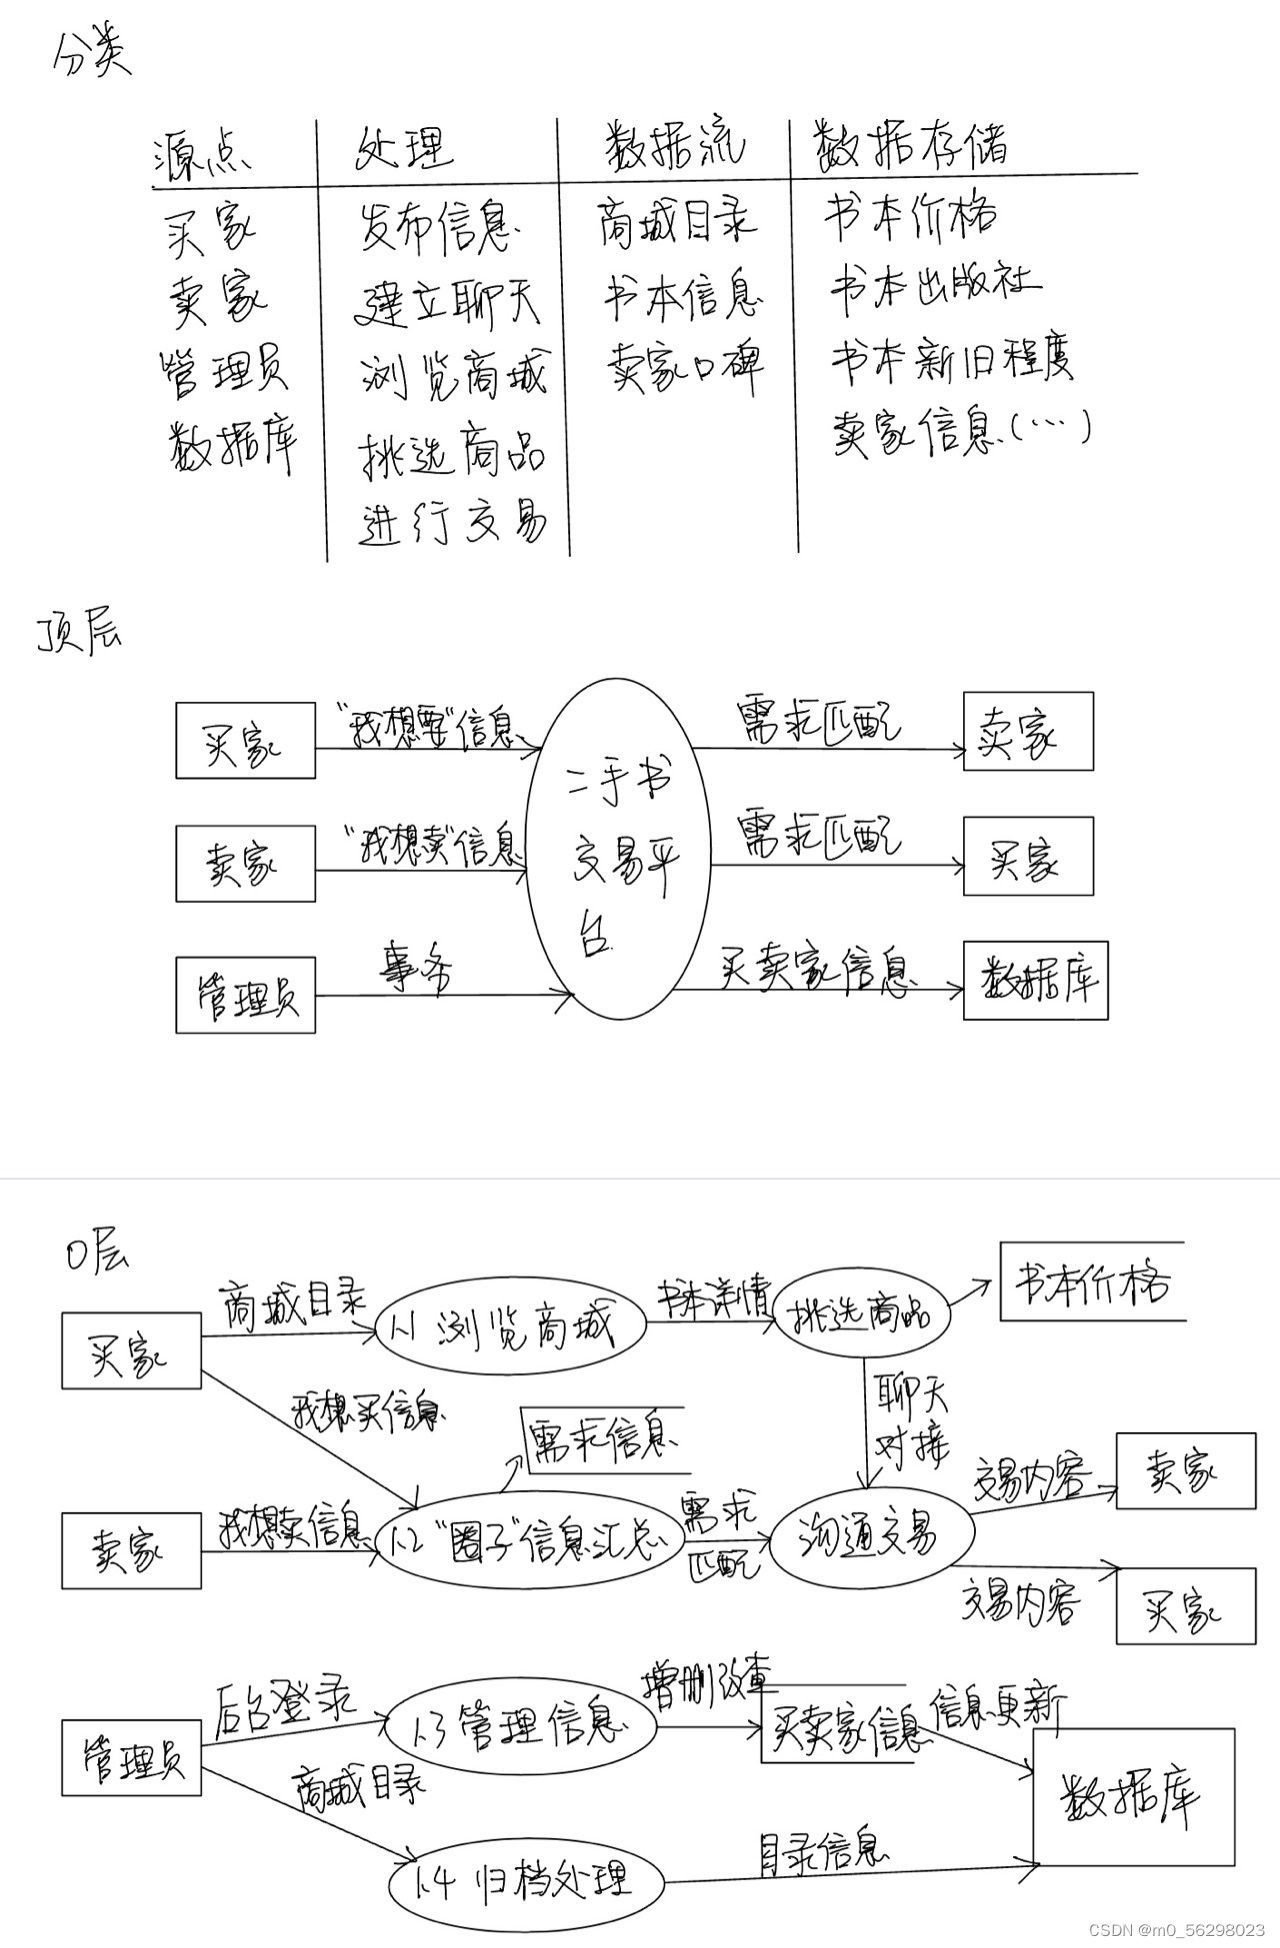 分类
源点 处理 数据流 数据存储
买家 发布信息 商城目录 书本价格
卖家 建立聊天 书本信息 书本出版社
管理员 浏览商城 卖家口碑 书本新旧程度
数据库 挑选商品 卖家信息(…)
进行交易
顶层
买家 “我想要”信息 需求匹配 卖家
二手书
卖家 “我想卖”信息 交易平 需求匹配 买家
台
管理员 事务 买卖家信息 数据库
0层
买家 商城目录 1.1 浏览商城 书本详情 挑选商品 书本价格
我想买信息 需求信息 聊天
对接
卖家 我想卖信息 1.2 “圈子”信息汇总 需求
匹配
沟通交易 交易内容 卖家
交易内容 买家
管理员 后台登录 1.3 管理信息 增删改查 买卖家信息 信息更新
商城目录 数据库
1.4 归档处理 目录信息
CSDN @m0_56298023